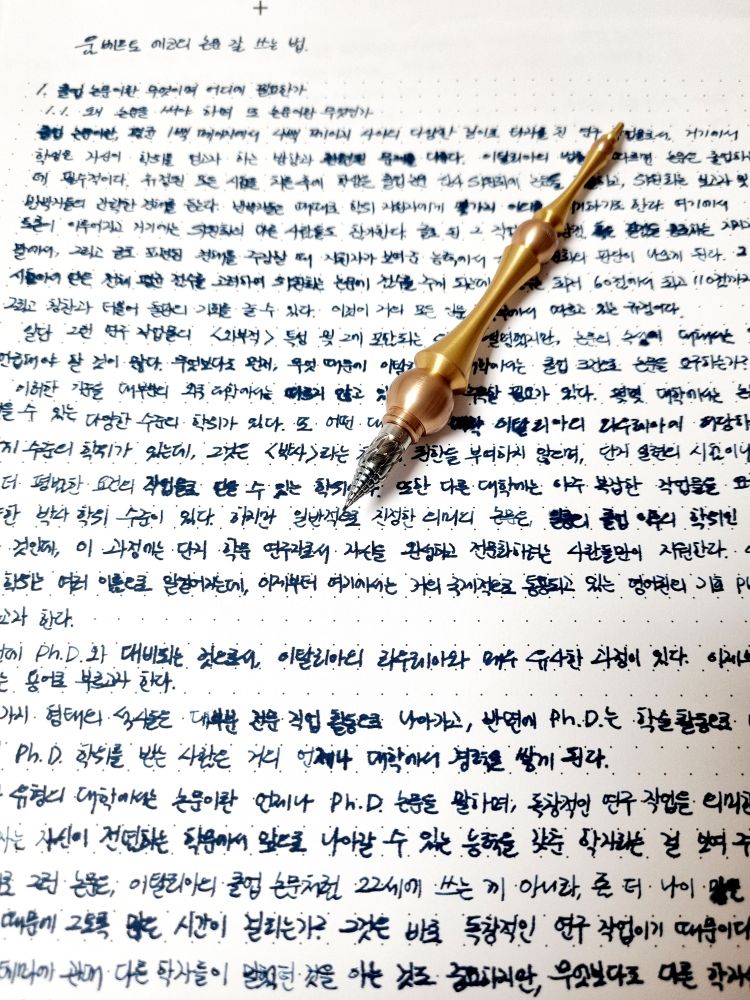 움베르토 에코의 논문 잘 쓰는 법.
1. 졸업 논문이란 무엇이며 어디에 필요한가
1.1. 왜 논문을 써야 하며 또 논문이란 무엇인가
졸업 논문이란, 평균 1백 페이지에서 4백 페이지 사이의 다양한 길이로 타자를 친 연구 작업으로서, 거기에서
학생은 자신이 학위를 얻고자 하는 방향과 관련된 문제를 다룬다. 이탈리아의 법을 따르면 논문은 졸업하는
데 필수적이다. 규정된 모든 시험을 치른 후에 학생은 졸업 논문 심사 위원회에 논문을 하고, 위원회는 보고와 및
반박자들의 관람한 견해를 듣는다. 반박자들은 때때로 학위 지원자에게 몇 가지 기도 한다. 여기에서
토론이 이루어지고 거기에는 위원회의 다른 사람들도 참가한다. 글로 된 그
말에서, 그리고 글로 표현된 견해를 주장할 때 지원자가 보여준 능력에서 위원회의 판단이 나오게 된다.
시험에서 얻은 전체 평균 점수를 고려하여 위원회는 논문에 점수를 주게 되는데, 최저 60점에서 최고 110점까지
그리고 칭찬과 더불어 출판의 기회를 줄 수 있다. 이것이 거의 모든 인문 학부에서 따르고 있는 규정이다.
일단 그런 연구 작업물의 <외부적> 특성 및 그에 포함되는 논문의 속성에 대해서는
언급해야 할 것이 많다. 무엇보다도 먼저, 무엇 때문에 이탈리아 대학에서는 졸업 조건으로 논문을 요구하는가?
이러한 기준을 대부분의 외국 대학에서는 따르지 않고 있 필요가 있다. 몇몇 대학에서는 논
수 있는 다양한 수준의 학위가 있다. 또 어떤 대 이탈리아의 라우레아에 해당하
수준의 학위가 있는데, 그것은 <박사>라는 권한을 부여하지 않으며, 단지 일련의 시험이나
더 평범한 요건의 작업물로 얻을 수 있는 학위 또한 다른 대학에는 아주 복잡한 작업물을 요
한 박사 학위 수준이 있다. 하지만 일반적으로 진정한 의미의 논문은, 일종의 졸업 이후의 학위인
것인데, 이 과정에는 단지 학문 연구자로서 자신을 완성하고 전문화하려는 사람들만이 지원한다.
학위는 여러 이름으로 알려져있는데, 이제부터 여기에서는 거의 국제적으로 통용되고 있는 영어권의 기호 Ph
고자 한다.
Ph.D.와 대비되는 것으로서, 이탈리아의 라우레아와 매우 유사한 과정이 있다. 이제부
는 용어로 부르고자 한다.
가지 형태의 라우레아들은 대부분 전문 직업 활동으로 나아가고, 반면에 Ph.D.는 학술 활동으로
Ph.D. 학위를 받는 사람은 거의 언제나 대학에서 경력을 쌓게 된다.
유형의 대학에서는 논문이란 언제나 Ph.D. 논문을 말하며, 독창적인 연구 작업을 의미한
자신이 전념하는 학문에서 앞으로 나아갈 수 있는 능력을 갖춘 학자라는 걸 보여 주
그런 논문은, 이탈리아의 졸업 논문처럼 22세에 쓰는 게 아니라, 좀 더 나이 많은
때문에 그토록 많은 시간이 걸리는가? 그것은 바로 독창적인 연구 작업이기 때문이다
테마에 관해 다른 학자들이 말했던 것을 아는 것도 중요하지만, 무엇보다도 다른 학자